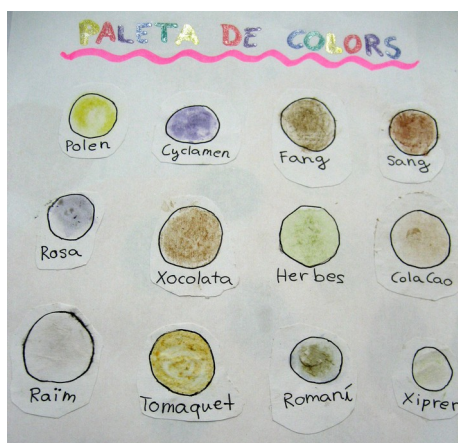 PALETA DE COLORS
Polen Cyclamen Fang Sang
Rosa Xocolata Herbes ColaCao
Raïm Tomaquet Romaní Xiprer